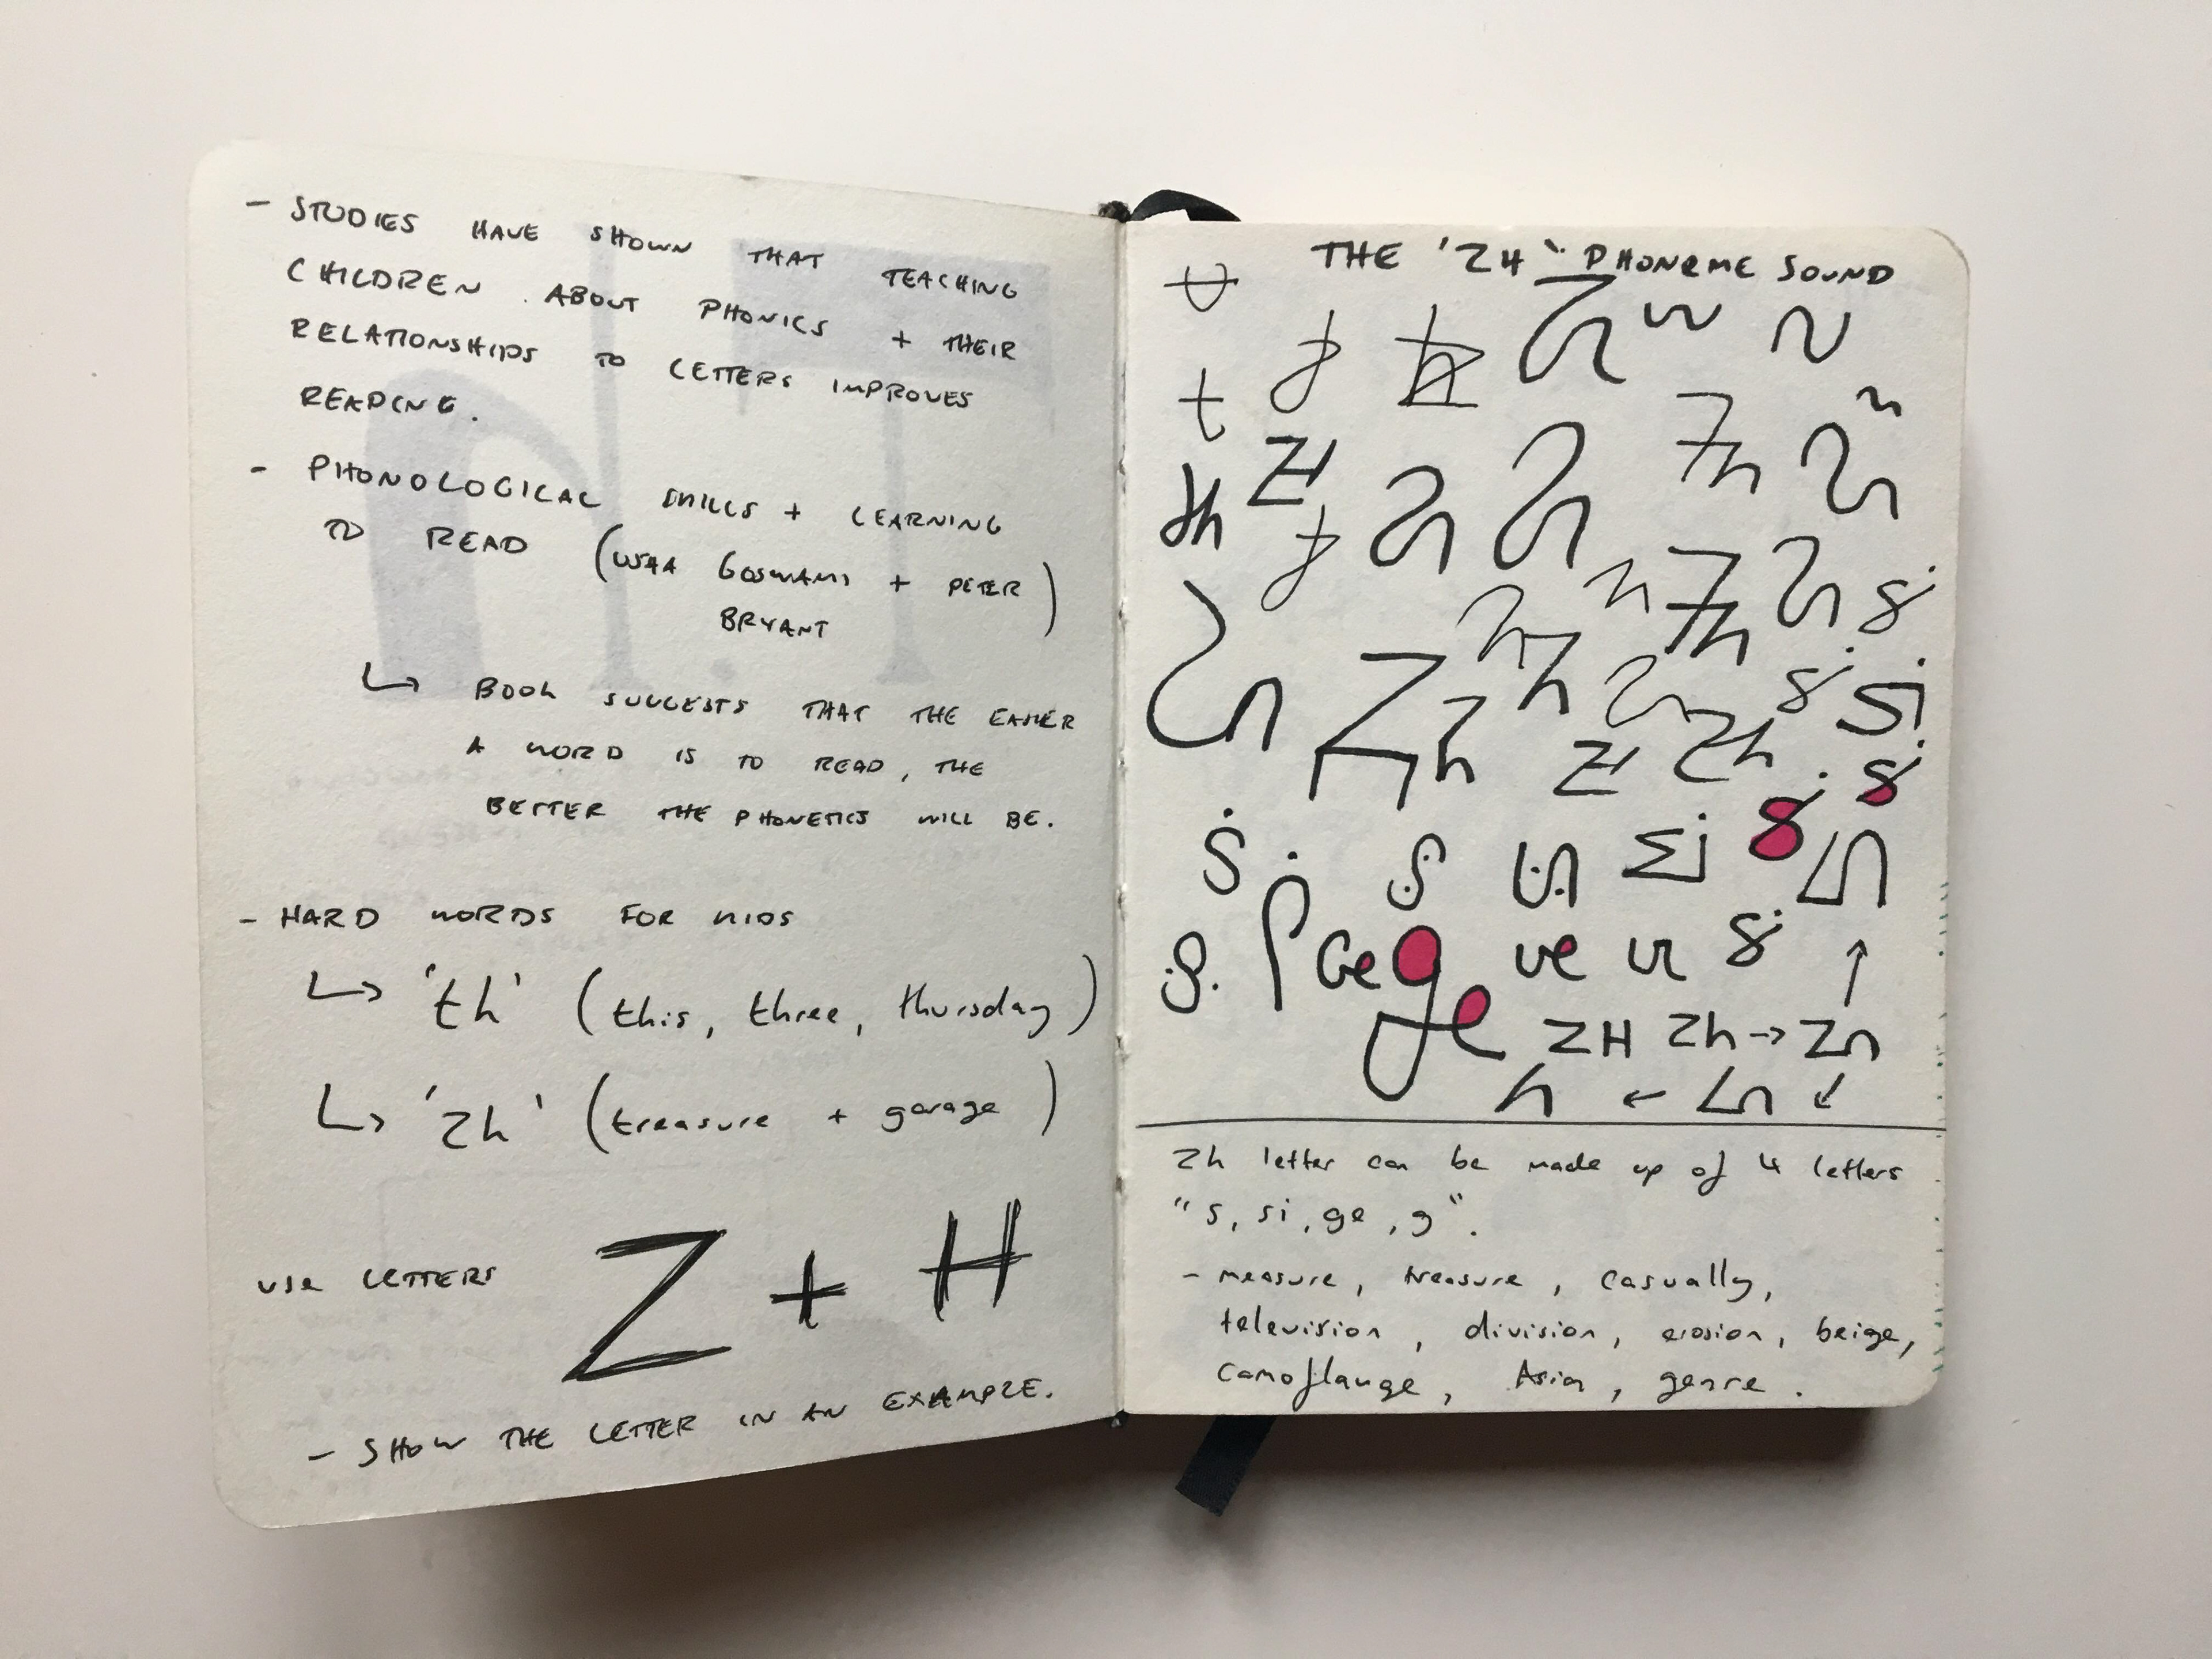 - STUDIES HAVE SHOWN THAT TEACHING
CHILDREN ABOUT PHONICS + THEIR
RELATIONSHIPS TO LETTERS IMPROVES
READING.
- PHONOLOGICAL SKILLS + LEARNING
TO READ (USHA GOSWAMI + PETER
BRYANT)
↳ BOOK SUGGESTS THAT THE EASIER
A WORD IS TO READ, THE
BETTER THE PHONETICS WILL BE.
- HARD WORDS FOR KIDS
↳ 'th' (this, three, thursday)
↳ 'zh' (treasure + garage)
USE LETTERS Z + H
- SHOW THE LETTER IN AN EXAMPLE.
THE 'ZH' PHONEME SOUND
t
th
Zh
si
Ge ge ve
ZH Zh → Zn
Zh letter can be made up of 4 letters
"s, si, ge, g".
- measure, treasure, casually,
television, division, erosion, beige,
camoflauge, Asia, genre.